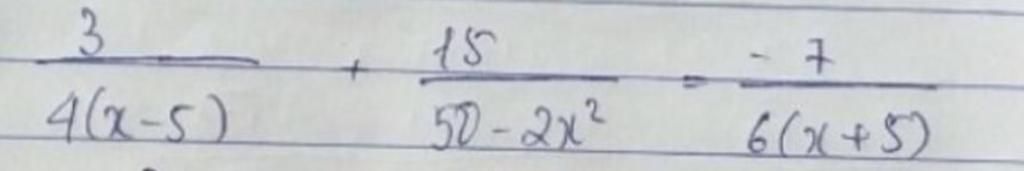 3/(4(x-5)) + 15/(50-2x²) = -7/(6(x+5))